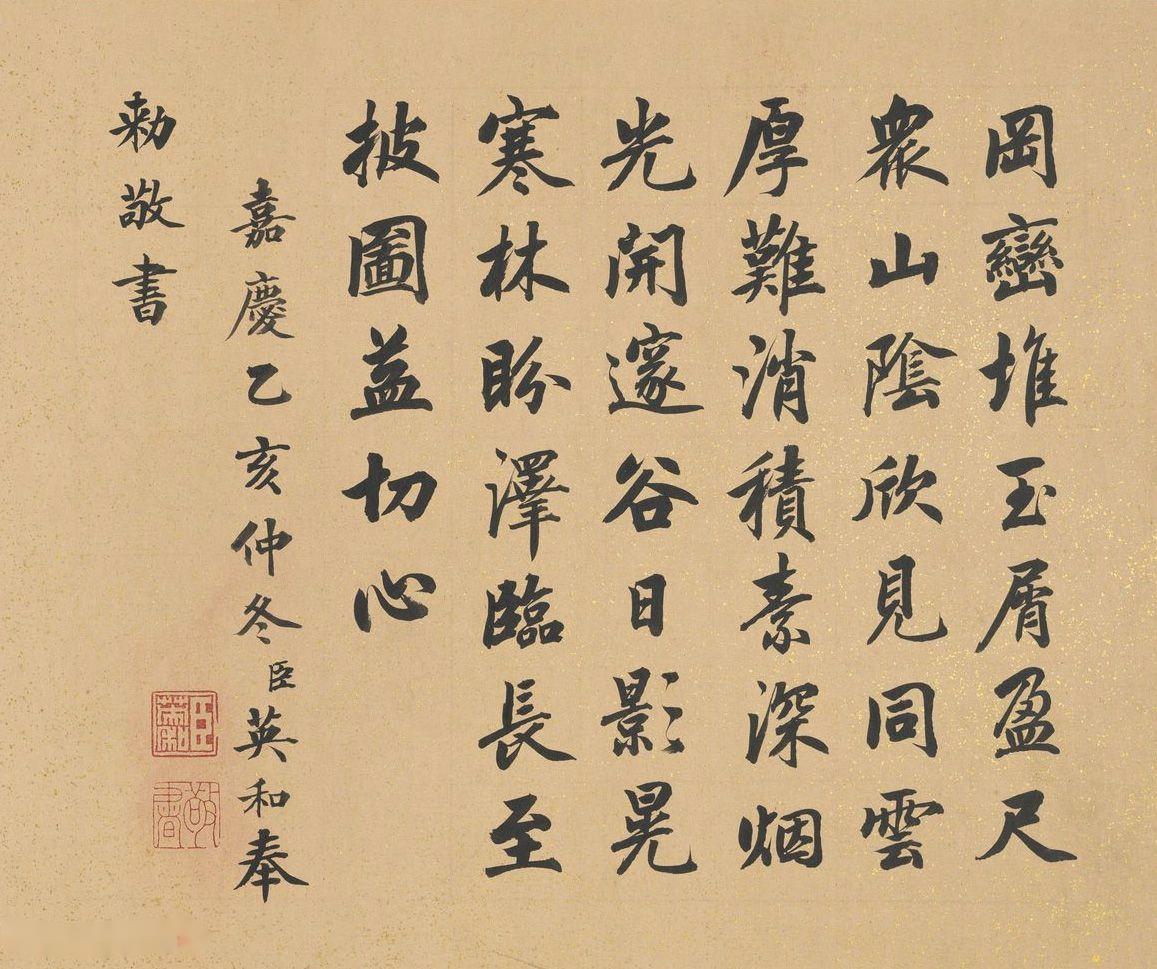 岡巒堆玉屑盈尺
衆山陰欣見同雲
厚難消積素深烟
光開邃谷日影晃
寒林盼澤臨長至
披圖益切心
嘉慶乙亥仲冬臣英和奉
勅敬書
臣英和
敬書